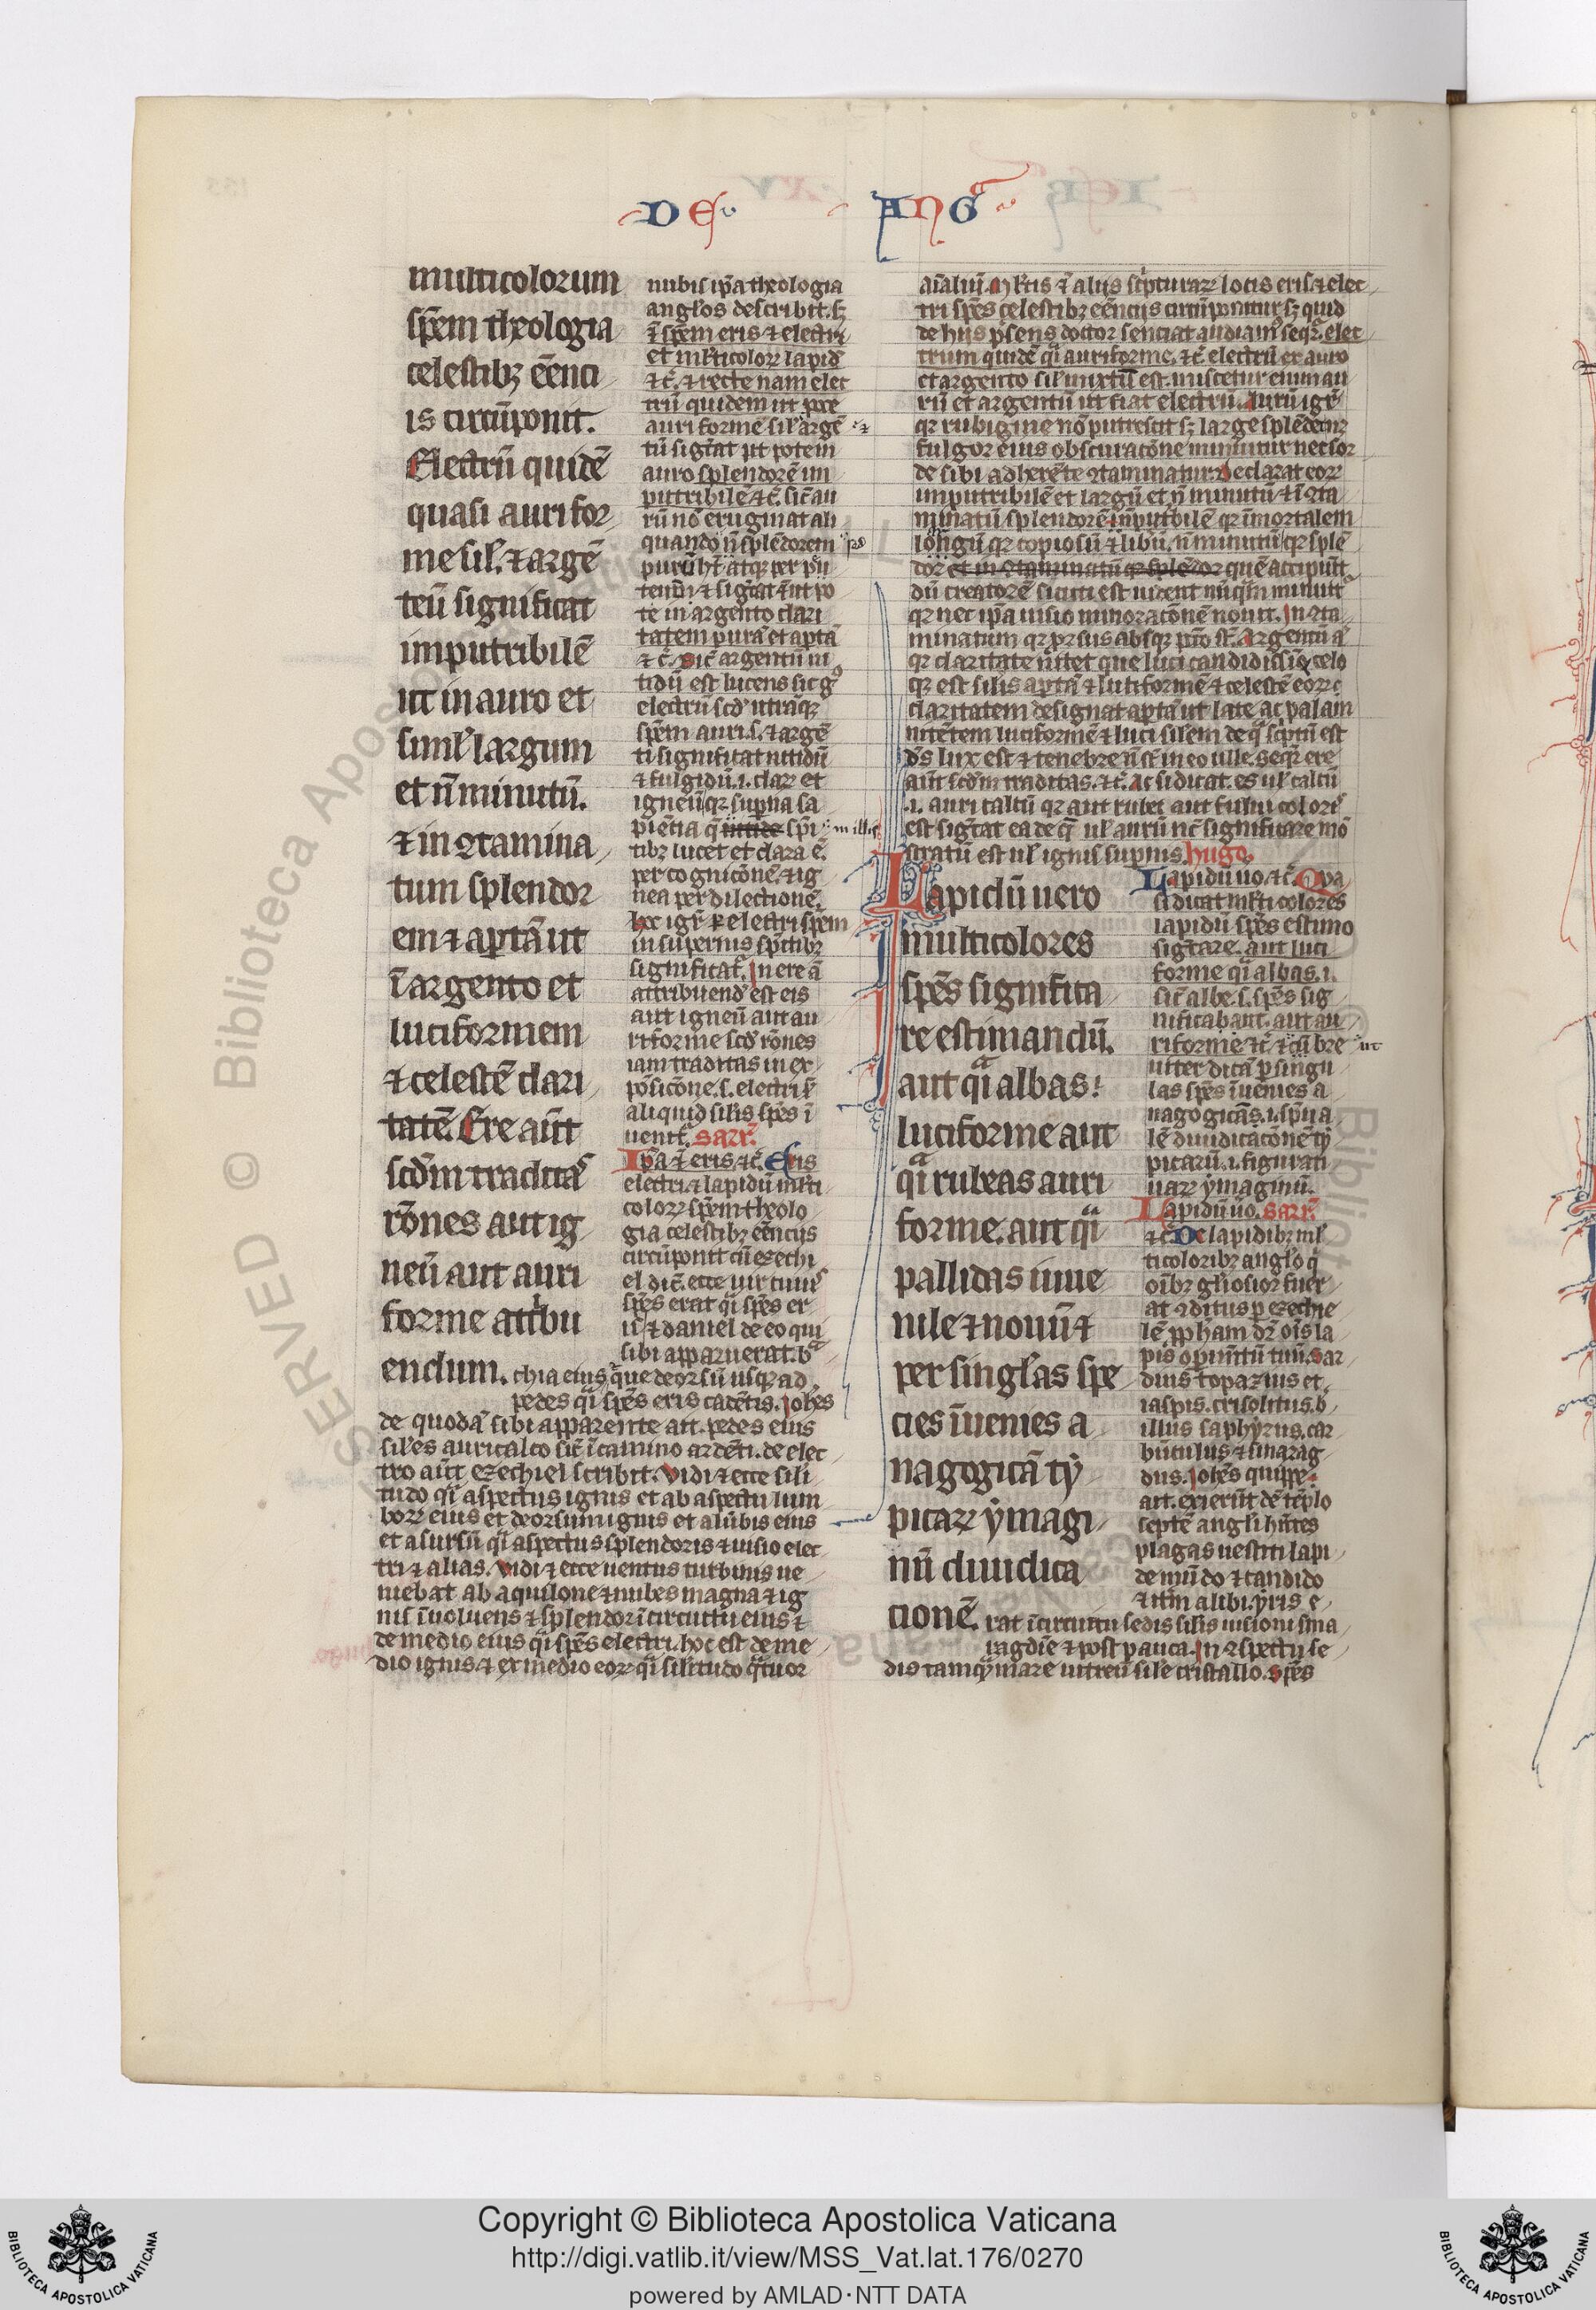 DE ANG
multicolorum
sp̄em theologia
celestibꝫ ēēnci
is circūponit.
Electrū quidē
quasi aurifor
me sil̓. ⁊ argē
teū significat
imputribilē
ut in auro et
siml̓ largum
et ñ minutū.
⁊ in ꝯtamina
tum splendor
em ⁊ aptā ut
ī argento et
luciformem
⁊ celestē clari
tatē. Ere aūt
scd̄m traditas
rōnes aut ig
neū aut auri
forme attbu
endum.
nubis ip̄a theologia
anglos describit. sꝫ
⁊ sp̄em eris ⁊ electri
et ml̓ticolorꝝ lapid̄
⁊c̄. ⁊ recte nam elec
trū quidem ut pote
auriforme sil̓ argē
tū siḡcat ut potem
auro splendorē im
putribilē ⁊c̄. sic̄ au
rū nō eruginat ali
quando ñ splēdorem
purū hꝫ atqꝫ per pu
te in argento clari
tatem purā et aptā
⁊c̄. Sic̄ argentū ni
tidū est lucens sic gͦ
electrū scd̄ utrāqꝫ
sp̄em auri .s. ⁊ argē
ti significat nitidū
⁊ fulgidū .i. clarꝝ et
igneū qꝛ superna sa
piētia
tibꝫ lucet et clara ē.
per cognicōnē. ⁊ ig
nea per dilectionē.
electri sp̄em
in supernis sp̄itibꝫ
significat. In ere ā
attribuend̄ est eis
aut igneū aut au
riforme scd̄ rōnes
iam traditas in ex
posicōne .s. electri s̄
aliquid sil̓is sp̄es ī
uenit. Sarr̄.
Ip̄a ⁊ eris. ⁊c̄. Eris
electri ⁊ lapidū ml̓ti
colorꝝ sp̄em theolo
gia celestibꝫ eēncijs
circūponit cū ezechi
el dic̄. ecce uir cuius
sp̄es erat q̄i sp̄es er
is ⁊ daniel de eo qui
sibi apparuerat. bͣ
chia eius que deorsū usqꝫ ad
pedes q̄i sp̄es eris cadētis. Johēs
de quodā sibi apparente ait. pedes eius
sil̓es auricalco sic̄ ī camino ardēti. de elec
tro aūt ezechiel scribit. Vidi ⁊ ecce sili
tudo q̄i aspectus ignis et ab aspectu lum
borꝝ eius et deorsum ignis et a lūbis eius
et asursū q̄i aspectus splendoris ⁊ uisio elec
tri ⁊ alias. Vidi ⁊ ecce uentus turbinis ue
niebat ab aquilone ⁊ nubes magna ⁊ ig
nis īuoluens ⁊ splendor ī circuitu eius ⁊
de medio eius q̄i sp̄es electri. hoc est de me
dio ignis. ⁊ ex medio eorꝝ q̄i silitudo qͣtuor
aīaliū. Ml̓tis ⁊ alijs scͥpturarꝝ locis eris ⁊ elec
tri sp̄es celestibꝫ eēncijs circūponitur. sꝫ quid
de hijs p̄sens doctor senciat audiam̄. seqͬ. elec
trum quidē q̄i auriforme. ⁊c̄. electrū ex auro
et argento sil̓ mixtū est. miscetur enim au
rū et argentū ut fiat electrū. Aurū igͬ
qꝛ rubigine nō putrescit sꝫ large splēdet nͨ
fulgor eius obscuracōne minuitur nec sor
de sibi adherēte ꝯtaminatur. Declarat eorꝝ
imputribilē et largū et ñ minutū ⁊ ī ꝯta
minatū splendorē. inputͥbilē qꝛ īmortalem
longū qꝛ copiosū ⁊ libū. ñ minutū qꝛ splē
dor et in ꝯtaminatū qꝛ splēdor quē accipiūt
dū creatorē sicuti est uident nūq̄m minuitͬ
qꝛ nec ip̄a uisio minoracōnē nouit. In ꝯta
minatum qꝛ prsus absqꝫ pctō st̄. Argentū aͥ
qꝛ claritate nitet que luci candidissīe ⁊ celo
qꝫ est silis aptā ⁊ luciformē ⁊ celestē eorꝝ
claritatem designat aptā ut late ac palam
nitētem luciformē ⁊ luci silem de qͣ scͥptū est
ds̄ lux est ⁊ tenebre ñ st̄ in eo ulle. seqͬ ere
aūt scd̄m traditas. ⁊c̄. Ac si dicat. es ul̓ calcū
.i. auricalcū qꝛ aut rubei aut fului coloris
est siḡcat ea de qͥ ul̓ aurū nc̄ significare mō
stratū est ul̓ ignis supernus. Hugo.
Lapidū uero
multicolores
sp̄es significa
re estimandū.
aut q̄i albas:
luciforme aut
q̄i rubeas auri
forme. aut q̄i
pallidas iuue
nile ⁊ nouū ⁊
per singl̓as spe
cies īuenies a
nagogicā ty
picarꝝ ymagi
nū diiudica
cionē.
Lapidū uo. ⁊c̄. Qua
si dicat ml̓ti colores
lapidū sp̄es estimo
siḡcare. aut luci
forme q̄i albas .i.
sic̄ albe .s. sp̄es sig
nificabant. aut au
riforme ⁊c̄. ⁊ cū bre
uiter dicā p singu
las sp̄es īuenies a
nagogicās .i. sp̄ua
lē diiudicacōnē ty
picarū .i. figurati
uarꝝ ymaginū.
Lapidū uo. Sarr̄.
⁊c̄. De lapidibꝫ ml̓
ticoloribꝫ anglo qͥ
oībꝫ gl̓iosior fuer
at ꝯditus p ezechie
lē pp̄ham dr̄ oīs la
pis opimētū tuū. Sar
dius topazius et
iaspis. crisolitus. b
illus saphyrus. car
būculus ⁊ smarag
dus. Johēs quippe
ait. exierūt de tēplo
septē angli hn̄tes
plagas uestiti lapi
de mūdo ⁊ candido
⁊ itm̄ alibi. yris e
rat ī circuitu sedis silis uisioni sma
ragdīe ⁊ post pauca. In ꝯspectu se
dis tamq̄ mare uitreū sile cristallo. Sp̄es
Copyright © Biblioteca Apostolica Vaticana
http://digi.vatlib.it/view/MSS_Vat.lat.176/0270
powered by AMLAD·NTT DATA
BIBLIOTECA APOSTOLICA VATICANA
BIBLIOTECA APOSTOLICA VATICANA